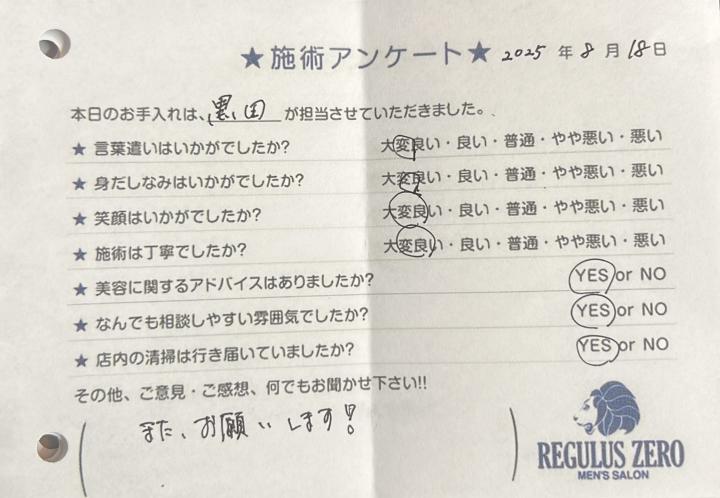 ★施術アンケート★ 2025 年 8 月 18 日
本日のお手入れは、黒田が担当させていただきました。
★ 言葉遣いはいかがでしたか? 大変良い・良い・普通・やや悪い・悪い
★ 身だしなみはいかがでしたか? 大変良い・良い・普通・やや悪い・悪い
★ 笑顔はいかがでしたか? 大変良い・良い・普通・やや悪い・悪い
★ 施術は丁寧でしたか? 大変良い・良い・普通・やや悪い・悪い
★ 美容に関するアドバイスはありましたか? YES or NO
★ なんでも相談しやすい雰囲気でしたか? YES or NO
★ 店内の清掃は行き届いていましたか? YES or NO
その他、ご意見・ご感想、何でもお聞かせ下さい!!
また、お願いします!
REGULUS ZERO
MEN'S SALON